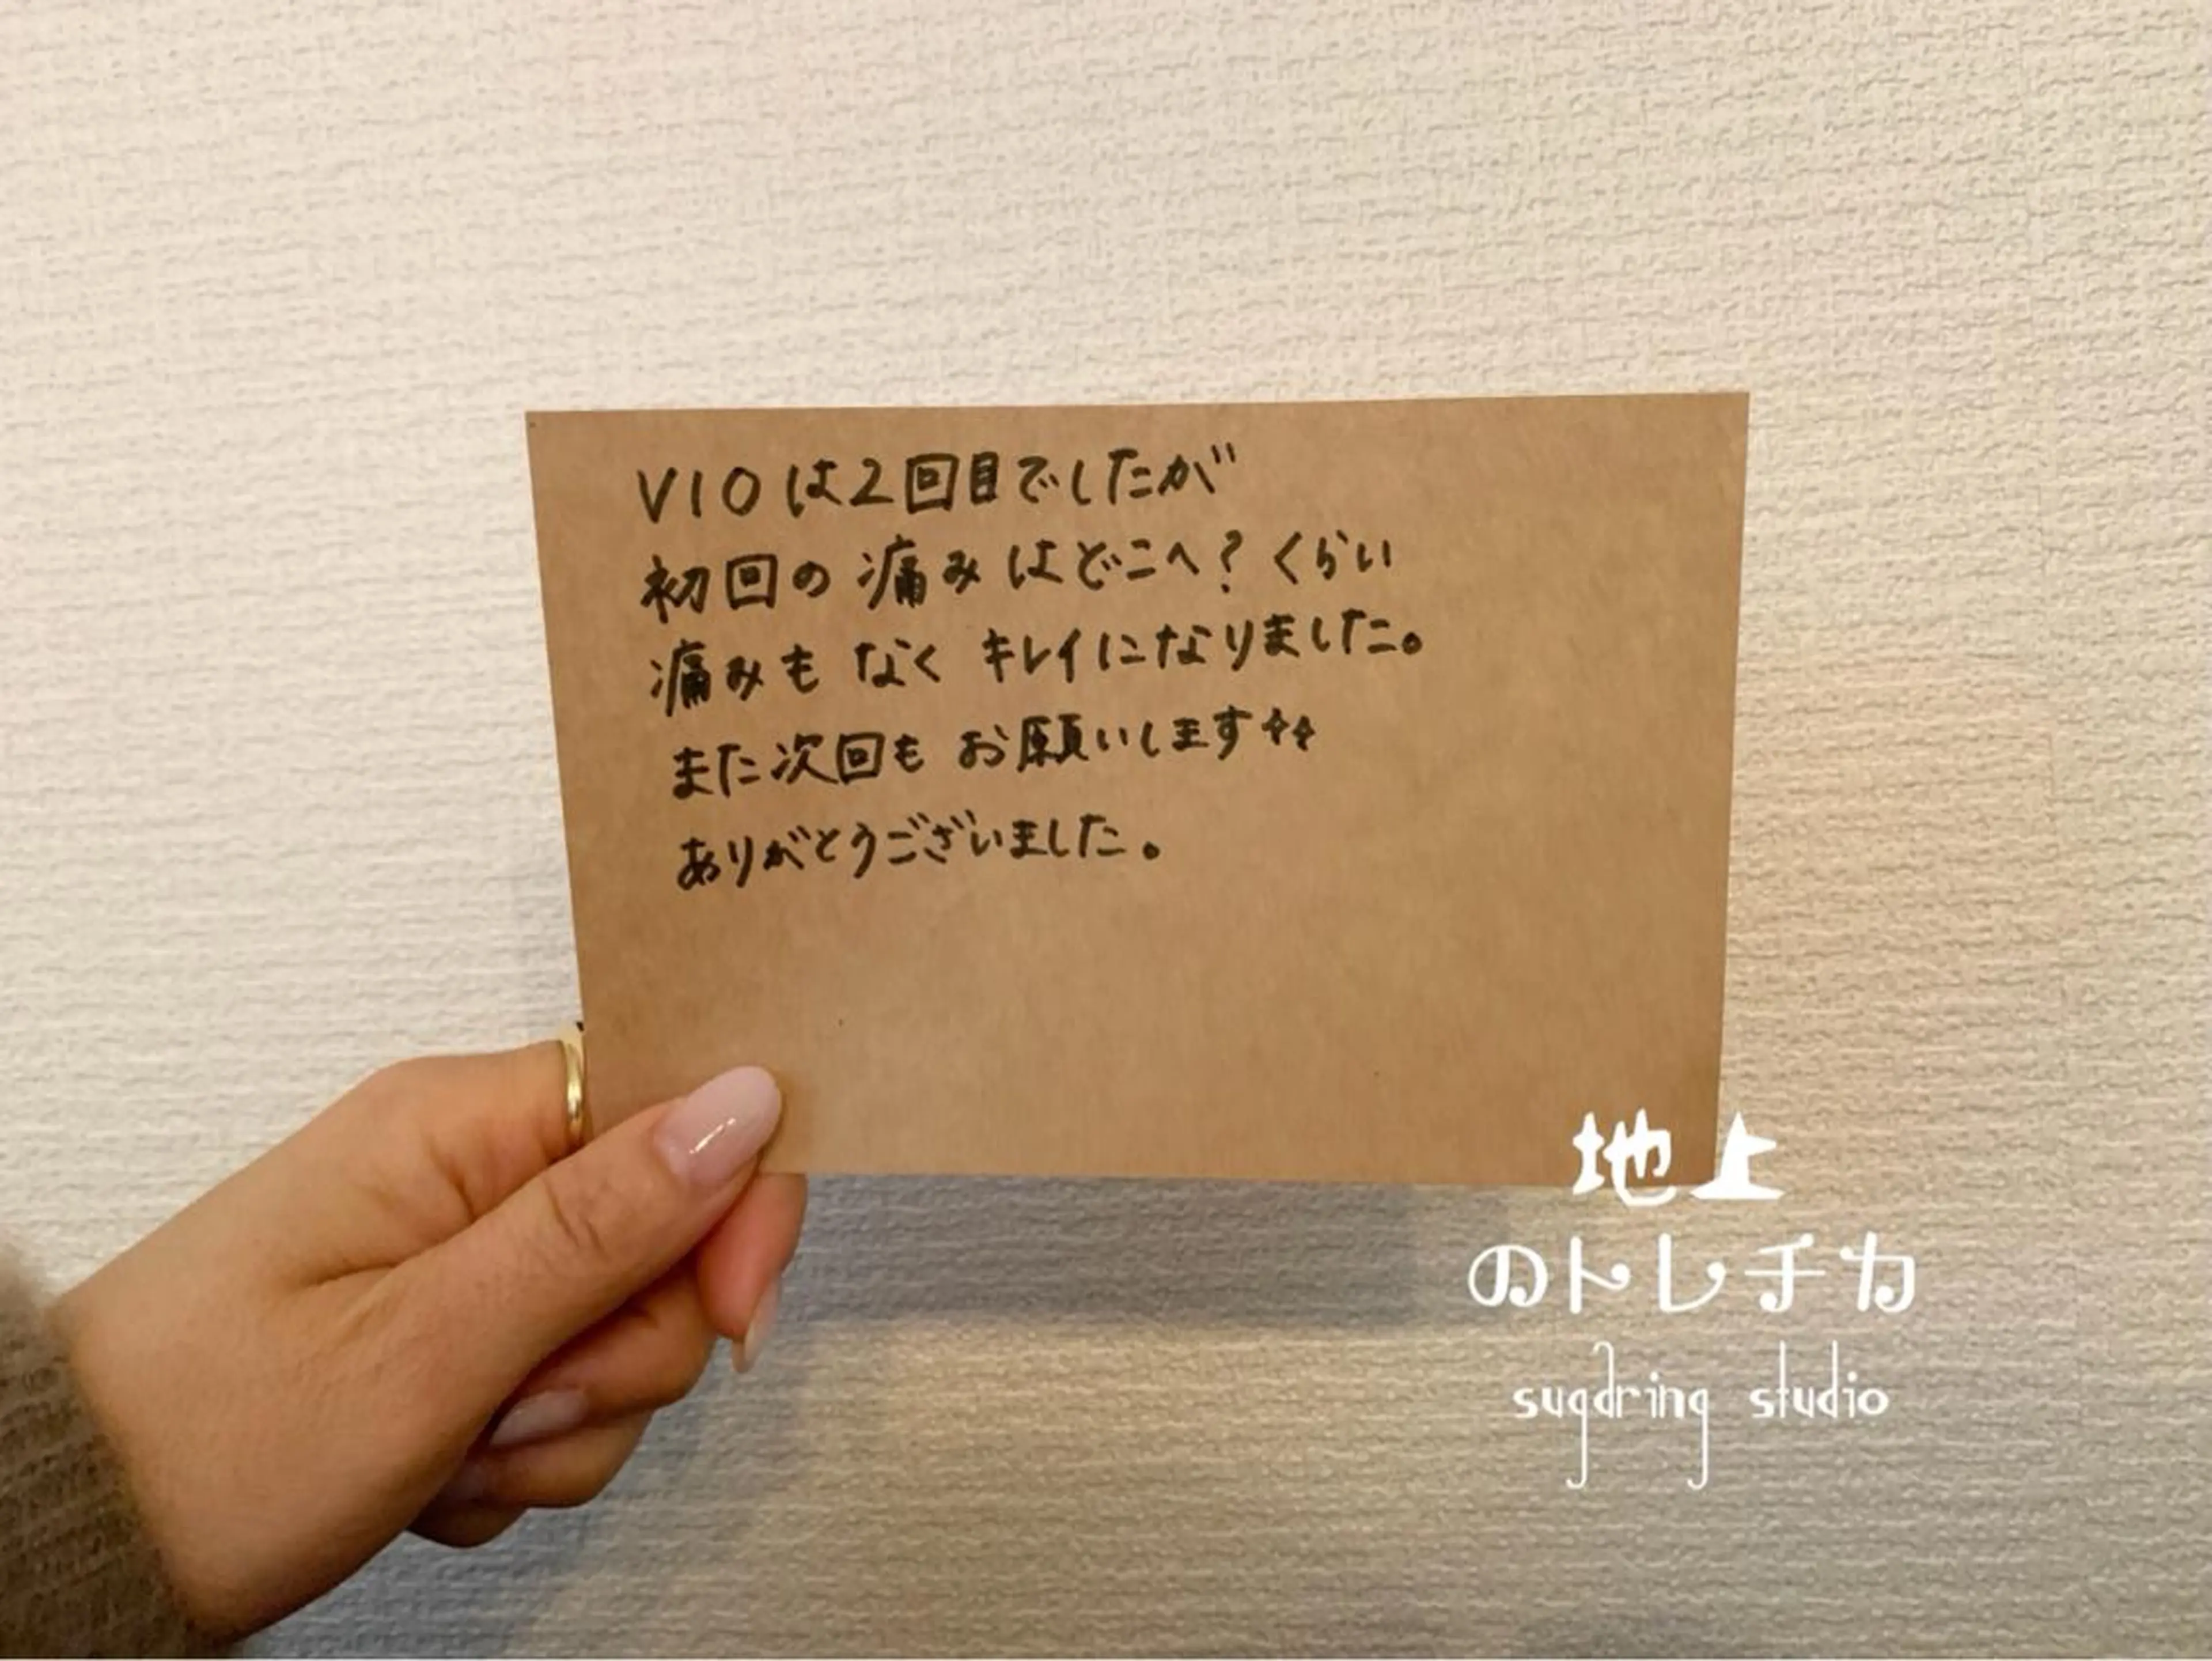 VIOは2回目でしたが
初回の痛みはどこへ?くらい
痛みもなくキレイになりました。
また次回もお願いします✧✧
ありがとうございました。
地上
のトレチカ
sugaring studio